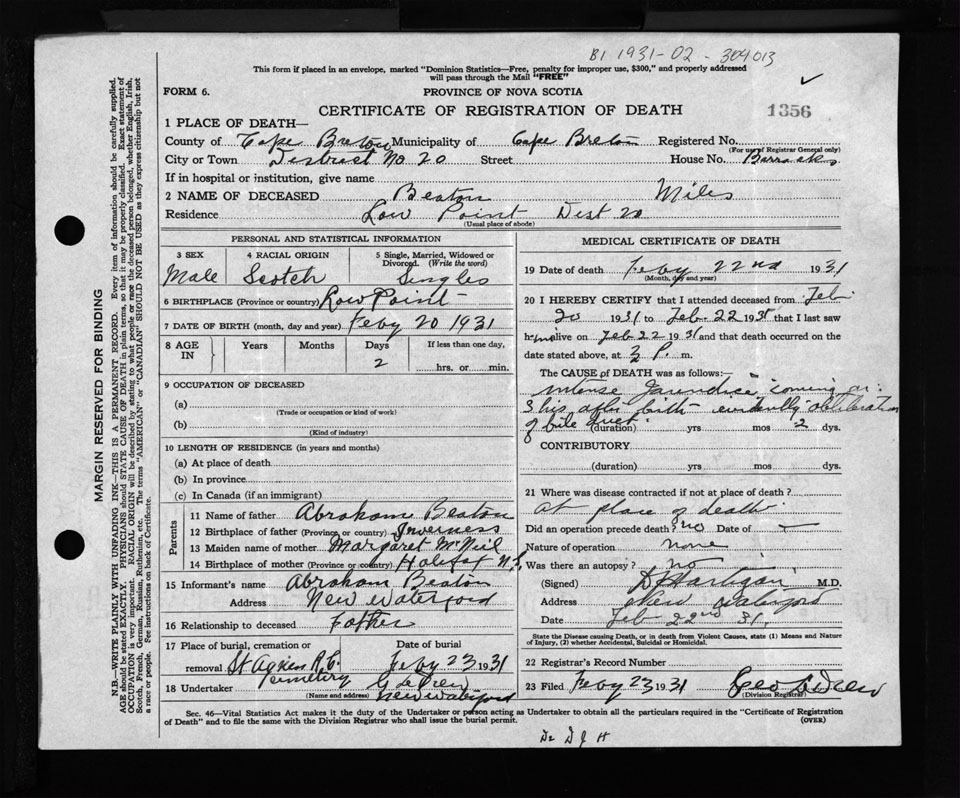 B1 1931-02-304013
This form if placed in an envelope, marked "Dominion Statistics—Free, penalty for improper use, $300," and properly addressed
will pass through the Mail "FREE"
FORM 6.
PROVINCE OF NOVA SCOTIA
CERTIFICATE OF REGISTRATION OF DEATH
1356
1 PLACE OF DEATH—
County of Cape Breton Municipality of Cape Breton Registered No.
(For use of Registrar General only)
City or Town District No. 20 Street House No. Barracks
If in hospital or institution, give name
2 NAME OF DECEASED Beaton Miles
Residence Low Point Dist 20
(Usual place of abode)
PERSONAL AND STATISTICAL INFORMATION
3 SEX 4 RACIAL ORIGIN 5 Single, Married, Widowed or Divorced. (Write the word)
Male Scotch Single
6 BIRTHPLACE (Province or country) Low Point
7 DATE OF BIRTH (month, day and year) Feby 20 1931
8 AGE IN Years Months Days If less than one day,
2 hrs. or min.
9 OCCUPATION OF DECEASED
(a)
(Trade or occupation or kind of work)
(b)
(Kind of industry)
10 LENGTH OF RESIDENCE (in years and months)
(a) At place of death
(b) In province
(c) In Canada (if an immigrant)
Parents
11 Name of father Abraham Beaton
12 Birthplace of father (Province or country) Inverness
13 Maiden name of mother Margaret McNeil
14 Birthplace of mother (Province or country) Halifax N.S.
15 Informant's name Abraham Beaton
Address New Waterford
16 Relationship to deceased Father
17 Place of burial, cremation or
removal St Agnes R.C. Cemetery Feby 23 1931
18 Undertaker G LeDrew
(Name and address) New Waterford
MEDICAL CERTIFICATE OF DEATH
19 Date of death Feby 22nd 1931
(Month, day and year)
20 I HEREBY CERTIFY that I attended deceased from Feb
20 1931 to Feb. 22 1931 that I last saw
him alive on Feb 22 1931 and that death occurred on the
date stated above, at 3 P. m.
The CAUSE of DEATH was as follows:—
intense Jaundice coming on
3 hrs after birth evidently obliteration
of bile duct
(duration) yrs mos 2 dys.
CONTRIBUTORY
(duration) yrs mos dys.
21 Where was disease contracted if not at place of death?
At place of death
Did an operation precede death? no Date of —
Nature of operation none
Was there an autopsy? no
(Signed) D Hartigan M.D.
Address New Waterford
Date Feb 22nd 31.
State the Disease causing Death, or in death from Violent Causes, state (1) Means and Nature
of Injury, (2) whether Accidental, Suicidal or Homicidal.
22 Registrar's Record Number
23 Filed Feby 23 1931 Geo LeDrew
(Division Registrar)
Sec. 46—Vital Statistics Act makes it the duty of the Undertaker or person acting as Undertaker to obtain all the particulars required in the "Certificate of Registration
of Death" and to file the same with the Division Registrar who shall issue the burial permit.
(OVER)
Dr D J H
MARGIN RESERVED FOR BINDING
N.B.—WRITE PLAINLY WITH UNFADING INK—THIS IS A PERMANENT RECORD. Every item of information should be carefully supplied.
AGE should be stated EXACTLY. PHYSICIANS should STATE CAUSE OF DEATH in plain terms, so that it may be properly classified. Exact statement of
OCCUPATION is very important. RACIAL ORIGIN will be described by stating to what people or race the deceased person belonged, whether English, Irish,
Scotch, French, German, Russian, Ruthenian, etc. The terms "AMERICAN" or "CANADIAN" SHOULD NOT BE USED as they express citizenship but not
a race or people. See instructions on back of Certificate.